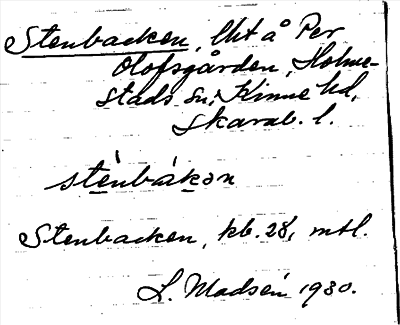 Stenbacken, lht å Per
Olofsgården, Holme-
stads sn, Kinne hd,
Skarab. l.
stènbákən
Stenbacken, kb. 28, mtl.
L. Madsén 1930.